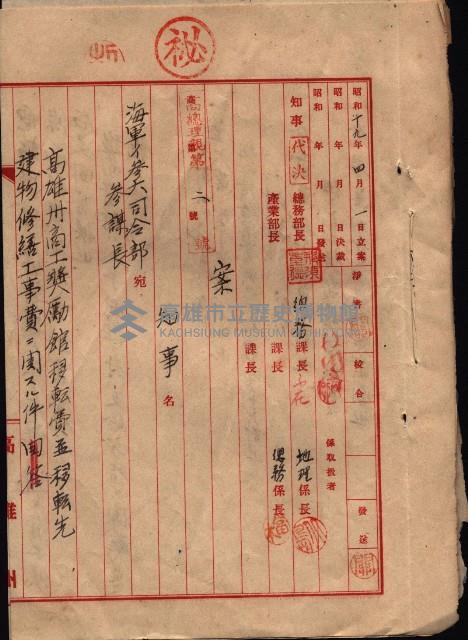 秘
昭和十九年四月一日立案
昭和 年 月 日決裁
昭和 年 月 日發送
淨書
校合
發送
知事
代決
總務部長
產業部長
總務課長
課長
課長
係取扱者
地理係長
總務係長
係
高總理親第二號
案
知事名
海軍
司令部
參謀長
宛
高雄州商工獎勵館移転費並移転先
建物修繕工事費ニ関スル件回答
高雄州
高雄市立歷史博物館
KAOHSIUNG MUSEUM OF HISTORY